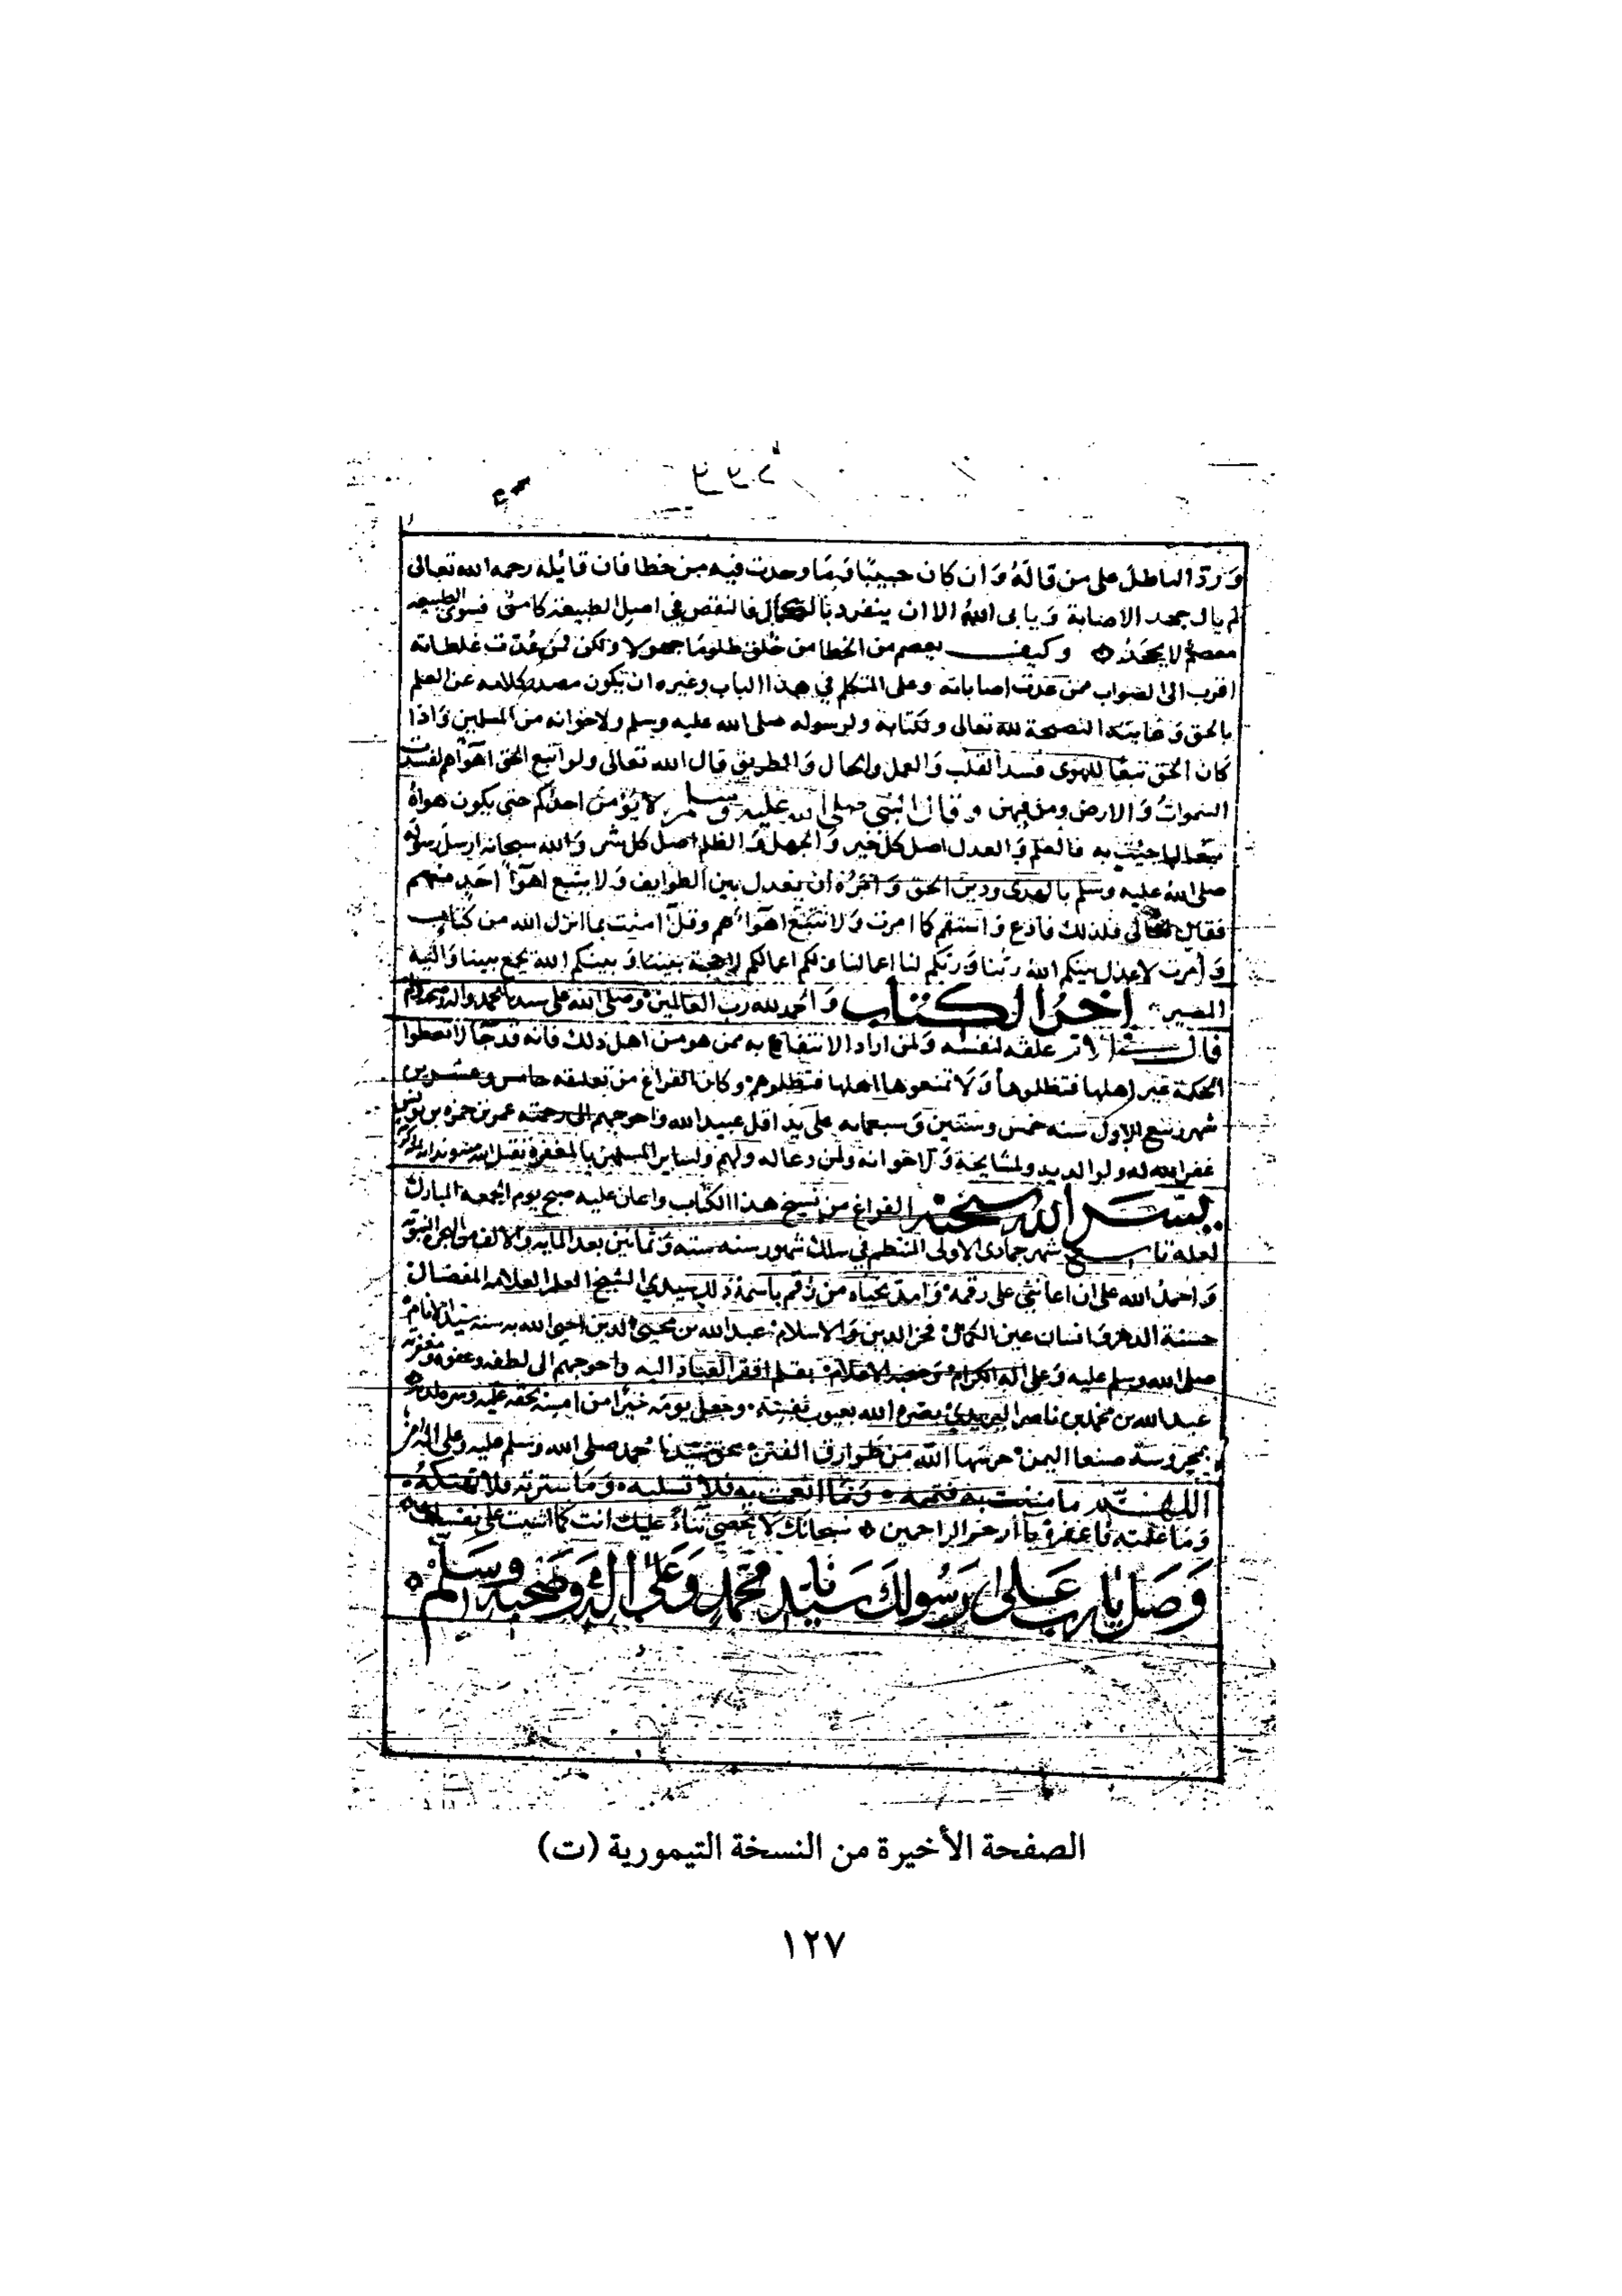 ورد الباطل على من قاله وان كان حبيبا وما وجدت فيه من خطا فان قائله رحمه الله تعالى
لم يال جهد الاصابة ويابى الله الا ان ينفرد بالكمال فالنقص في اصل الطبيعة كامن فبنوا الطبيعة
لا يجحد وكيف يعصم من الخطا من خلق ظلوما جهولا ولكن من عدت غلطاته
اقرب الى الصواب ممن عدت اصاباته وعلى المتكلم في هذا الباب وغيره ان يكون مصدر كلامه عن العلم
بالحق وغايته النصيحة لله تعالى ولكتابه ولرسوله صلى الله عليه وسلم ولاخوانه من المسلمين واذا
كان الحق تبعا للهوى فسد القلب والعمل والحال والطريق قال الله تعالى ولو اتبع الحق اهوآهم لفسدت
السموات والارض ومن فيهن وقال النبي صلى الله عليه وسلم لا يؤمن احدكم حتى يكون هواه
تبعا لما جيت به فالعلم والعدل اصل كل خير والجهل والظلم اصل كل شر والله سبحانه ارسل رسوله
صلى الله عليه وسلم بالهدى ودين الحق وامره ان يعدل بين الطوايف ولا يتبع اهوآ احد منهم
فقال تعالى فلذلك فادع واستقم كما امرت ولا تتبع اهوآءهم وقل آمنت بما انزل الله من كتاب
وامرت لاعدل بينكم الله ربنا وربكم لنا اعمالنا ولكم اعمالكم لا حجة بيننا وبينكم الله يجمع بيننا واليه
المصير آخر الكتاب والحمد لله رب العالمين وصلى الله على سيدنا محمد واله وصحبه وسلم
قال علقه لنفسه ولمن اراد الانتفاع به ممن هو من اهل ذلك فانه قد جآ لا تعطوا
الحكمة غير اهلها فتظلموها ولا تمنعوها اهلها فتظلموهم وكان الفراغ من تعليقه خامس وعشرين
شهر ربيع الاول سنه خمس وستين وسبعمايه على يد اقل عبيد الله واحوجهم الى رحمته عمر بن حمزه بن يونس
غفر الله له ولوالديه ولمشايخه ولاخوانه ولمن دعا له ولهم ولساير المسلمين بالمغفرة
يسر الله سبحنه الفراغ من نسخ هذا الكتاب واعان عليه صبح يوم الجمعه المبارك
لعله تاسع شهر جمادى الاولى المنتظم في سلك شهور سنه سته وثمانين بعد المايه والالف من الهجره النبويه
واحمد الله على ان اعانني على رقمه وامد بحياه من رقم باسمه ذلك سيدي الشيخ العلم العلامه المفضال
حسنة الدهر وانسان عين الكمال فخر الدين والاسلام عبد الله بن محيي الدين احيى الله به سنه سيد الانام
صلى الله وسلم عليه وعلى اله الكرام وصحبه الاعلام بقلم افقر العباد اليه واحوجهم الى لطفه وعفوه ومغفرته
عبد الله بن محمد بن ناصر بصره الله بعيوب نفسه وجعل يومه خيرا من امسه بحقه عليه
بمحروسة صنعا اليمن حرسها الله من طوارق الفتن بحق سيدنا محمد صلى الله وسلم عليه وعلى اله
اللهم ما مننت به فتممه وما انعمت به فلا تسلبه وما سترته فلا تهتكه
وما علمته فاغفره يا ارحم الراحمين سبحانك لا نحصي ثناء عليك انت كما اثنيت على نفسك
وصل يا رب على رسولك سيدنا محمد وعلى اله وصحبه وسلم
الصفحة الأخيرة من النسخة التيمورية (ت)
١٢٧